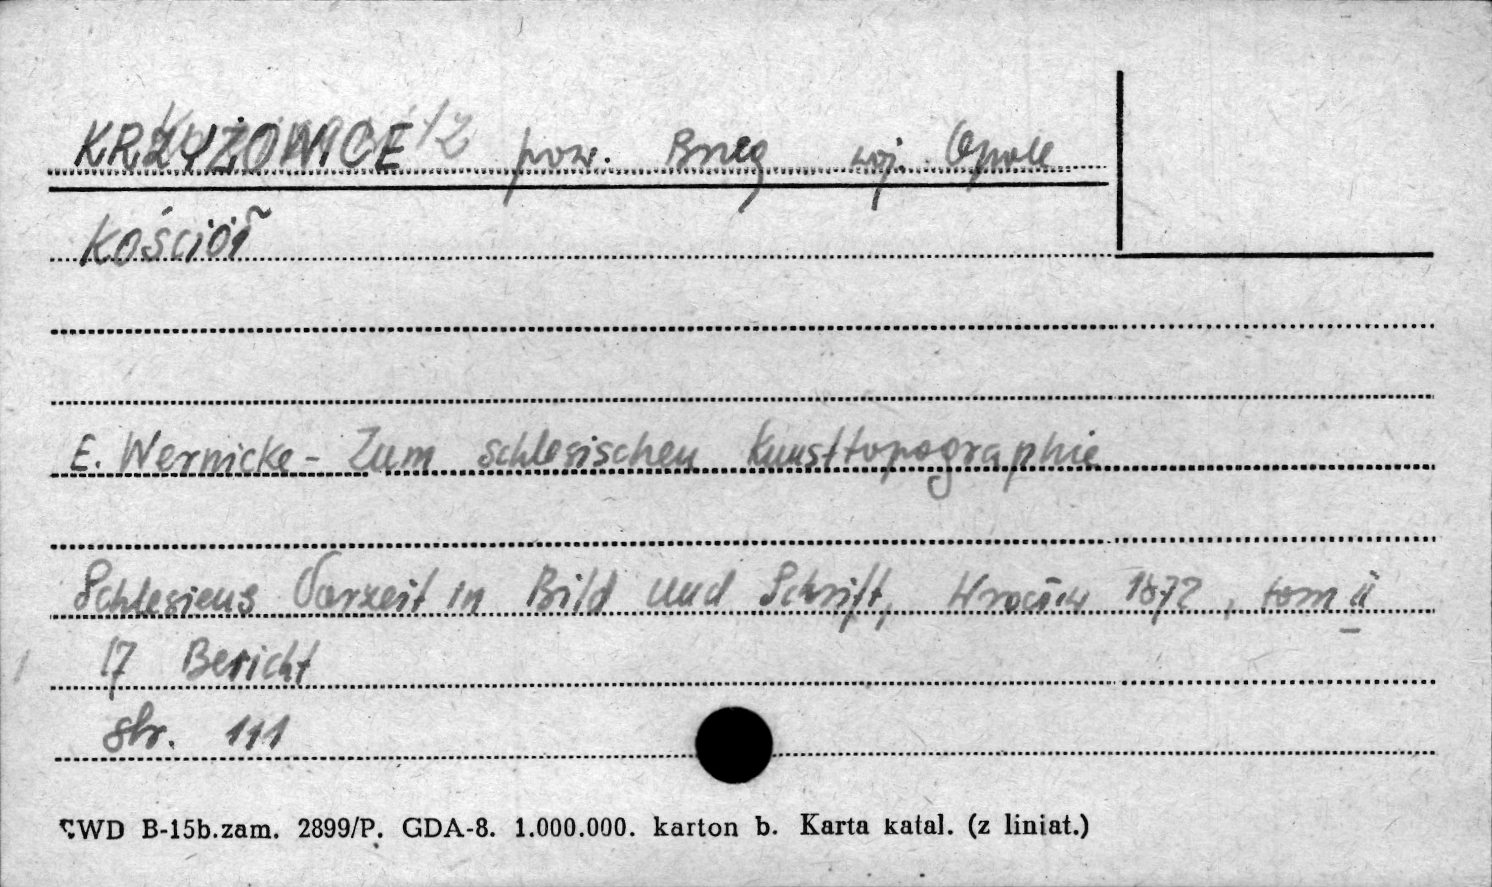 KRZYŻOWICE pow. Brzeg woj. Opole
Kościół
E. Wernicke - Zum schlesischen Kunsttopographie
Schlesiens Vorzeit in Bild und Schrift, Wrocław 1872, tom II
17 Bericht
str. 111
CWD B-15b.zam. 2899/P. GDA-8. 1.000.000. karton b. Karta katal. (z liniat.)